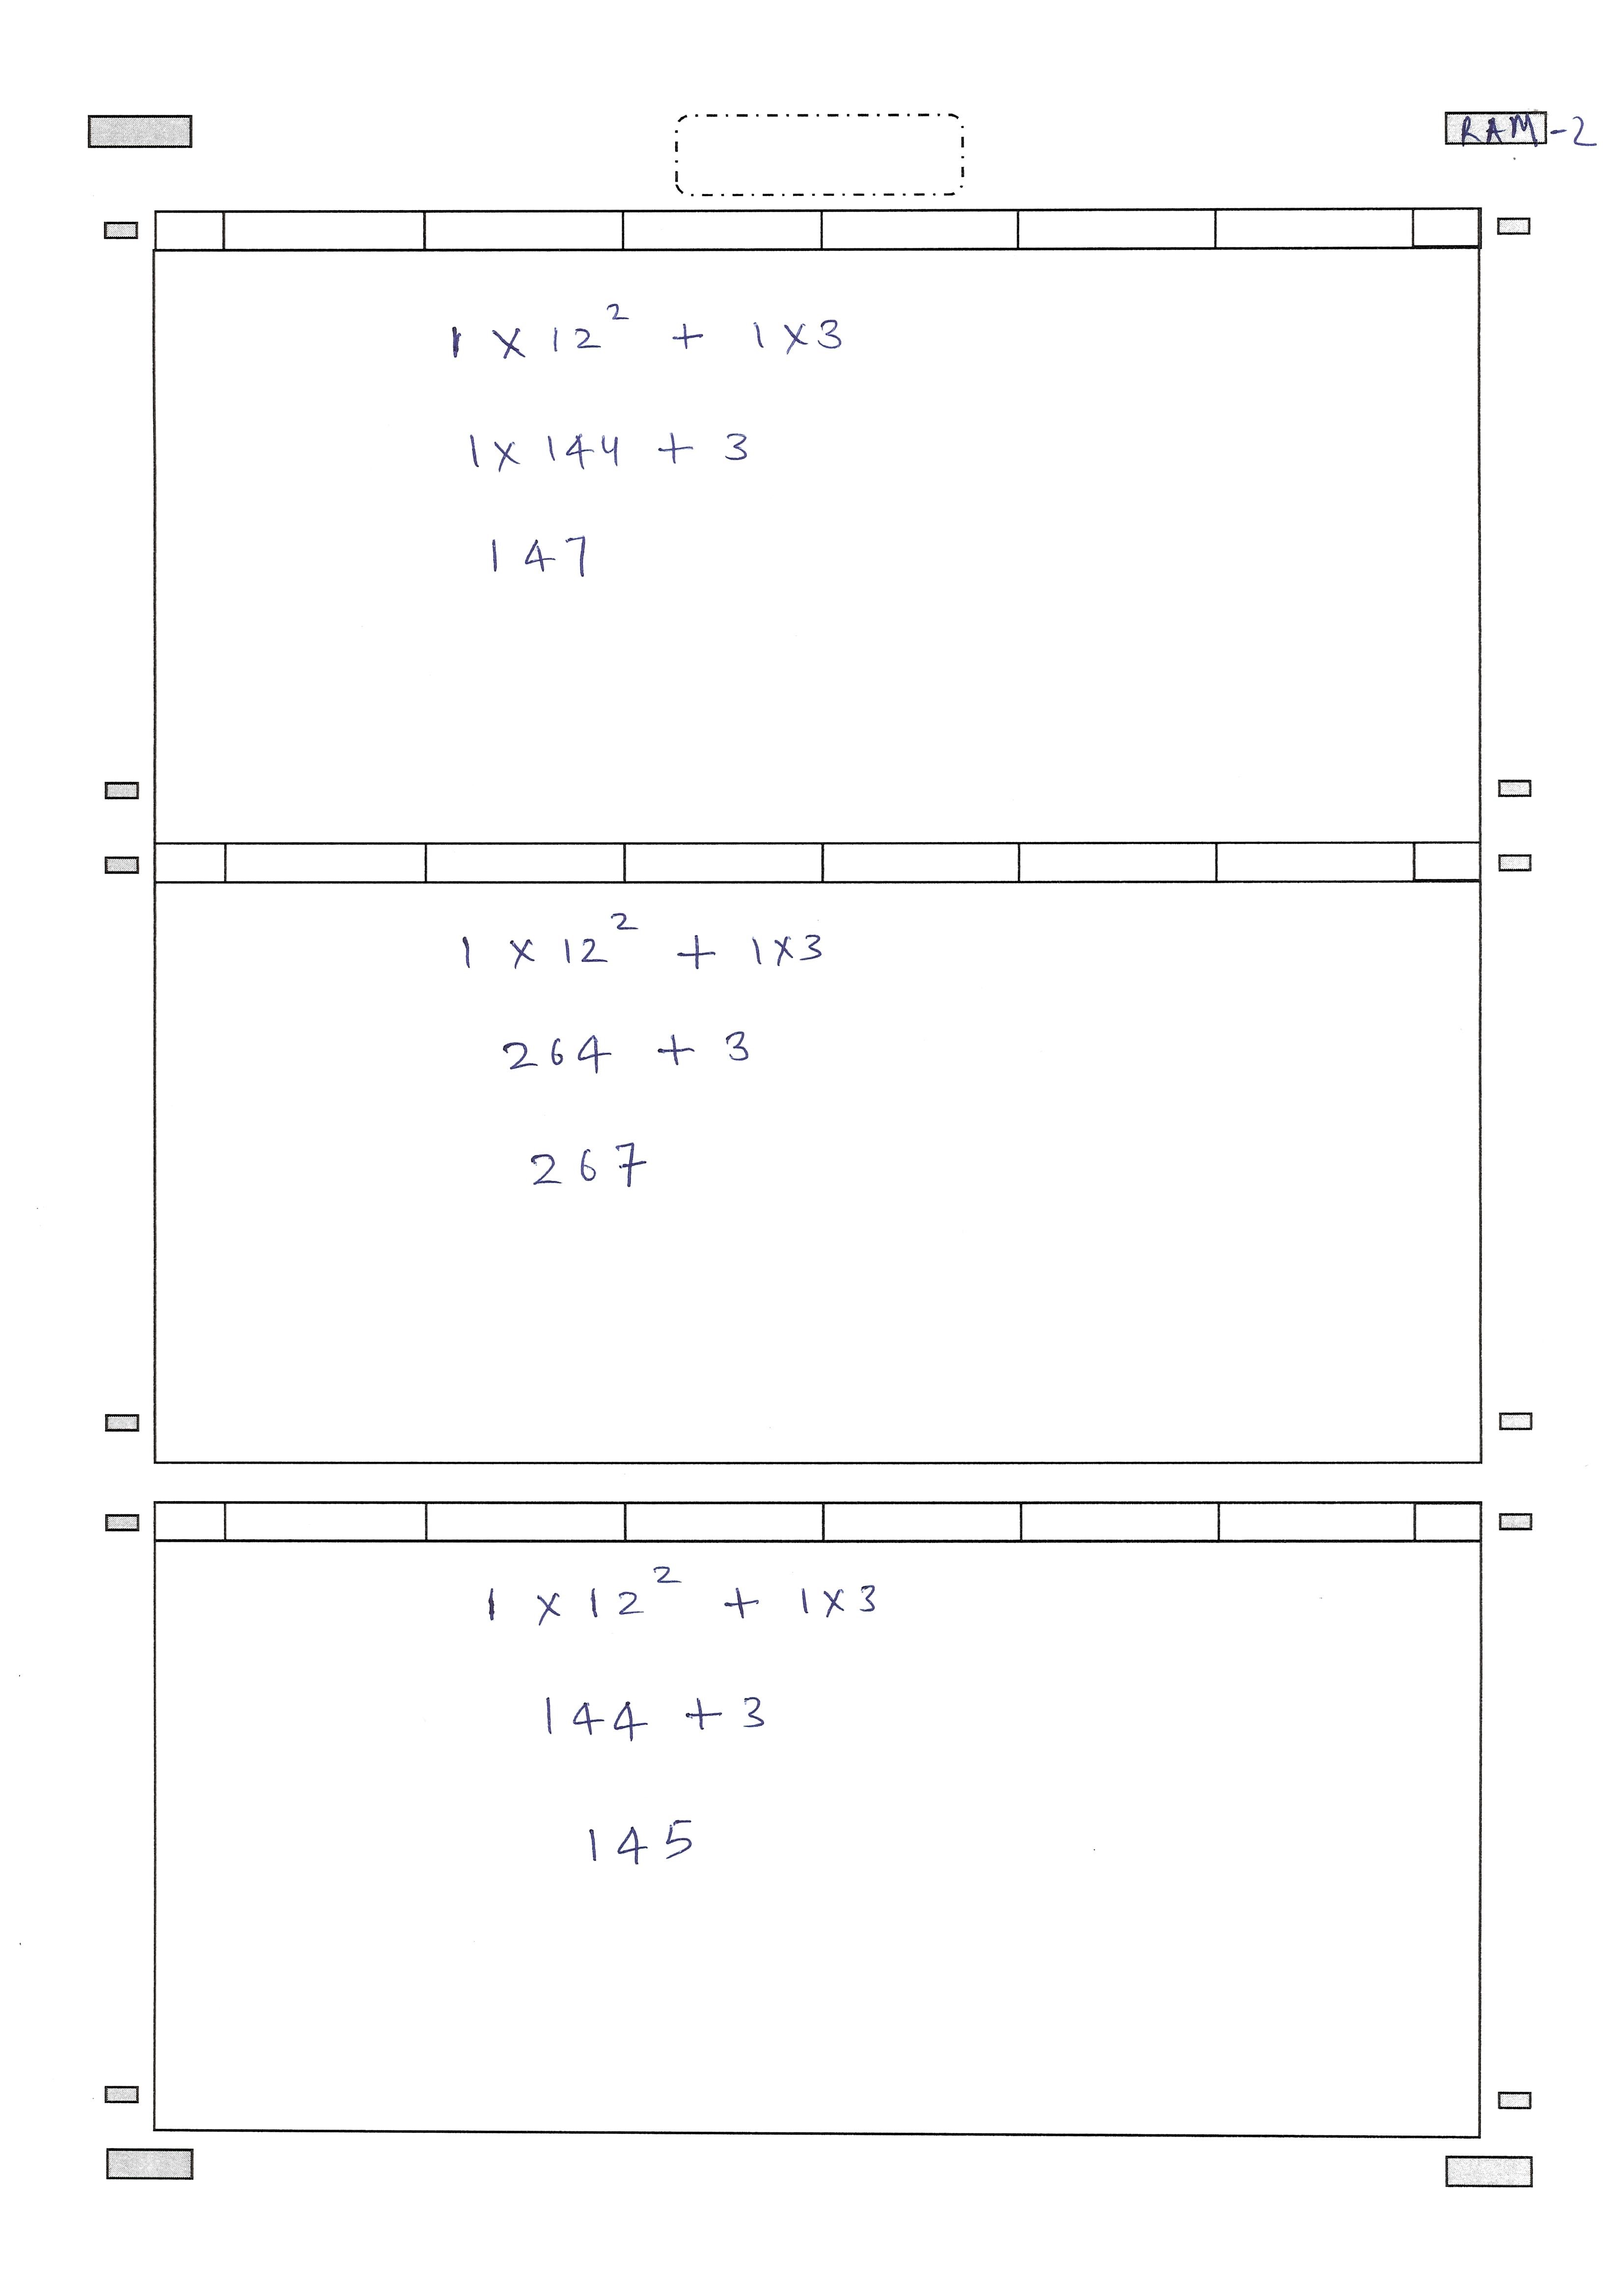 RAM-2
1 × 12² + 1×3
1× 144 + 3
147
1 × 12² + 1×3
264 + 3
267
1 × 12² + 1×3
144 + 3
145